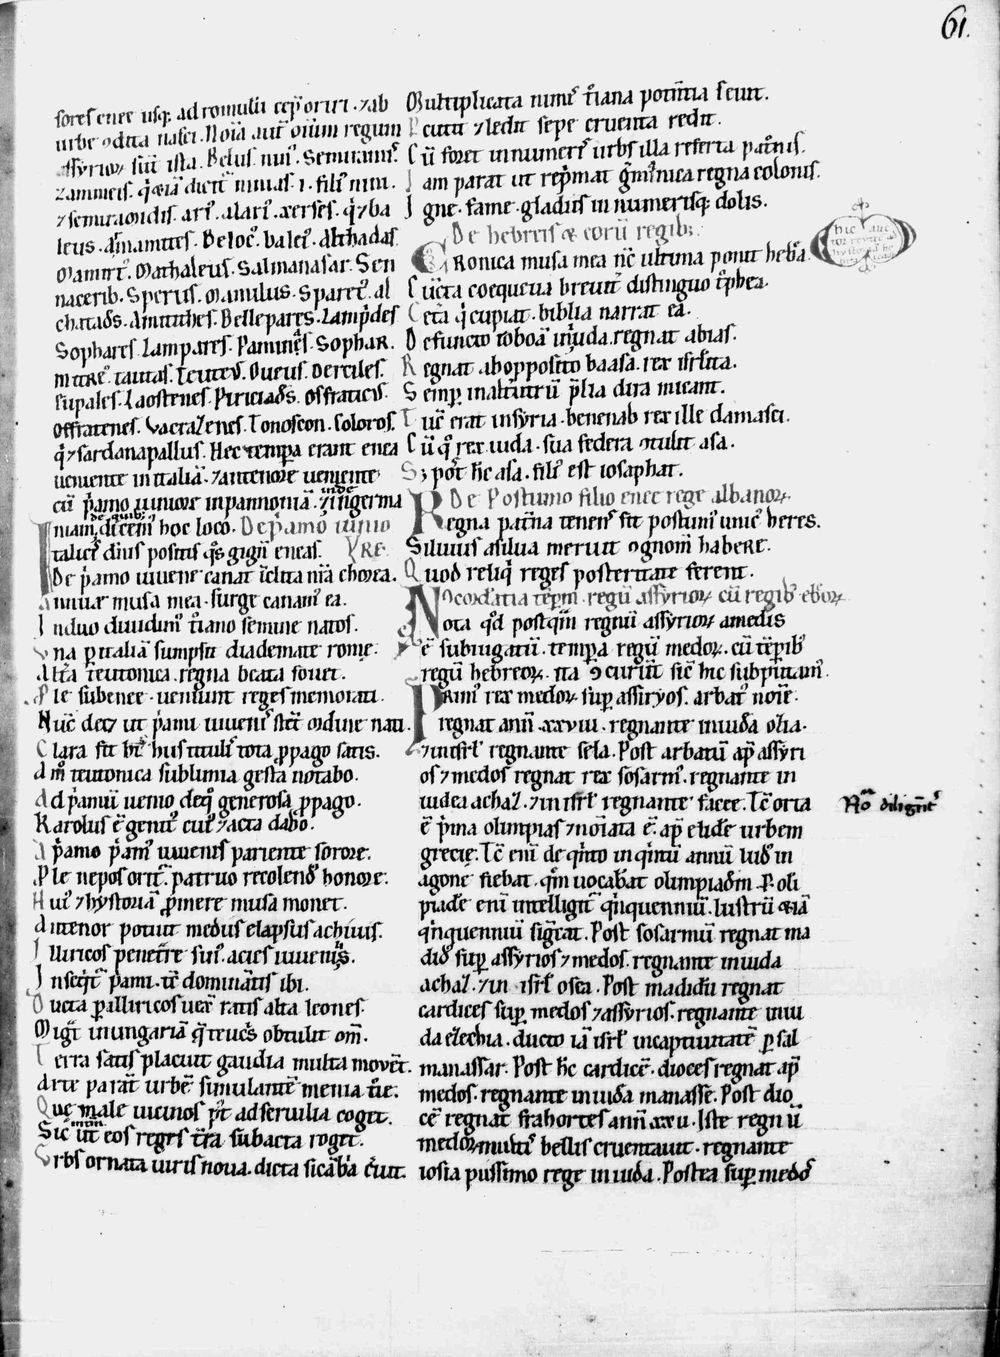 61.
sores enee usq; ad romulū ceꝑ̄ oriri. ⁊ ab
urbe ɔdita nasci. Noīa aut̄ oīum regum
assyrioꝝ sūt ista. Belus. ninꝰ. Semiramis.
zammeis. q̇ ⁊ iā dicit̄ ninias. i. filiꝰ nini.
⁊ semiramidis. ariꝰ. alariꝰ. xerses. q̇ ⁊ ba
leus. Armamitres. Belocꝰ. baleꝰ. Althadas
Mamitꝰ. Mathaleus. Salmanasar. Sen
nacerib. Sperus. Mamilus. Sparetꝰ. al
chatads. Amitithes. Bellepares. Lamp̄des
Sophares. Lampares. Paminꝰs. Sophar.
mitre. tautas. Teuteus. Oneus. Derciles.
eupales. Laostenes. Piriciads. Offraticus.
Offratenes. Vacrazenes. Tonoscon. Coloros.
q̇ ⁊ sardanapallus. Hec tempora erant enea
ueniente in italiā. ⁊ antenore ueniente
cū p̄amo iuniore in pannoniā. ⁊ inde in germa
niam de quibꝰ dicem hoc loco. De p̄amo iunio
Italicꝰ diuis positis q̇s gign̄ eneas. RE.
De p̄amo iuuene canat īclita n̄ra chorea.
Anniuar musa mea. surge canamꝰ ea.
In duo diuidimꝰ t̄iano semine natos.
Vna p italiā sumpsit diademate rome.
Alta teutonica regna beata fouet.
Ple subeunt. ueniunt reges memorati.
Nūc decꝫ ut p̄ami iuuenis stet ordine nati.
Clara sit huiꝰ tituli tota ꝓpago satis.
Am̄ teutonica sublimia gesta notabo.
Ad p̄amū uenio deq; generosa ꝓpago.
Karolus ē genitꝰ cuiꝰ ⁊ acta dabo.
A p̄amo p̄amꝰ iuuenis pariente sorore.
Ple nepos orit̄. patruo recolendꝰ honore.
Huiꝰ ⁊ hystoriā ꝓmere musa monet.
Antenor potuit medius elapsus achiuis.
Illiricos penetr̄e sinꝰ. acies iuuenis.
Inseqt̄ p̄ami. t̄e dominātis ibi.
Ducta p alliricos uenit ratis alta leones.
Migrat in ungariā q̄ treuēs obtulit om̄.
Terra satis placuit gaudia multa mouet.
Arte parat urbē simulantē menia t̄ie.
Que male uicinos p̄t ad seruilia cogit.
Sic ut eos reges t̄ra subacta rogit.
Vrbs ornata uiris noua. dicta sicābia c̄uit.
Multiplicata nimis t̄iana potentia seuit.
Percutit ⁊ ledit sepe cruenta redit.
Cū foret innumeris urbs illa referta patnis.
Iam parat ut rep̄mat ḡmanica regna colonis.
Igne. fame. gladiis innumerisq; dolis.
De hebreis ⁊ eorū regibꝫ.
Cronica musa mea nūc ultima ponit heb̄a.
Cūcta coequeua breuit̄ distinguo tꝓhea.
Cetā q̇ cupiat. biblia narrat ea.
Defuncto roboā iniuda. regnat abias.
Regnat ab opposito baasa. rex isrl̄ita.
Semp in alt̄utrū p̄lia dira micant.
Tūc erat in syria. benenab rex ille damasci.
Cū q̇ rex iuda. sua federa ɔtulit asa.
Sꝫ post hc̄ asa. filiꝰ est iosaphat.
De Postumo filio enee rege albanoꝝ.
Regna pat̄na tenens fit postumꝰ unicꝰ heres.
Siluius a silua meruit ɔgnomen habere.
Quod reliq̇ reges posteritate ferent.
ɔcordatia tēpoꝝ. regū assyrioꝝ cū regibꝰ ebreoꝝ.
Nota qd̄ postqm̄ regnū assyrioꝝ a medis
ē subiugatū. tempora regū medoꝝ. cū tēpibꝰ
regū hebreoꝝ. ita ɔcurūt sic̄ hic subputam̄.
Primꝰ rex medoꝝ. sup assiryos. arbatꝰ noīe.
regnat ann̄. xxviii. regnante in iuda ozia.
⁊ in isrl̄ regnante sela. Post arbatū ap assyri
os ⁊ medos regnat rex sosarmꝰ. regnante in
iudea achaz. ⁊ in isrl̄ regnante facee. Tc̄ orta
ē p̄ma olimpias ⁊ noīata ē. ap elide urbem
grecie. Tc̄ enī de qinto in qintū annū ludꝰ in
agone fiebat. qm̄ uocabat olimpiadem. P oli
piade enī intelligit̄ qinquenniū. lustrū ⁊ iā
qinquenniū sigt̄at. Post sosarmū regnat ma
didꝰ sup assyrios ⁊ medos. regnante in iuda
achaz. ⁊ in isrl̄ osea. Post madidū regnat
cardices sup medos ⁊ assyrios. regnante in iu
da ezechia. ducto iā isrl̄ in captiuitatē p sal
manassar. Post hc̄ cardicē. dioces regnat ap
medos. regnante in iuda manasse. Post dio
cē regnat frahortes ann̄ xxv. Iste regnū
medoꝝ multis bellis cruentauit. regnante
iosia piissimo rege in iuda. Postea sup medos
Nō diligent̄